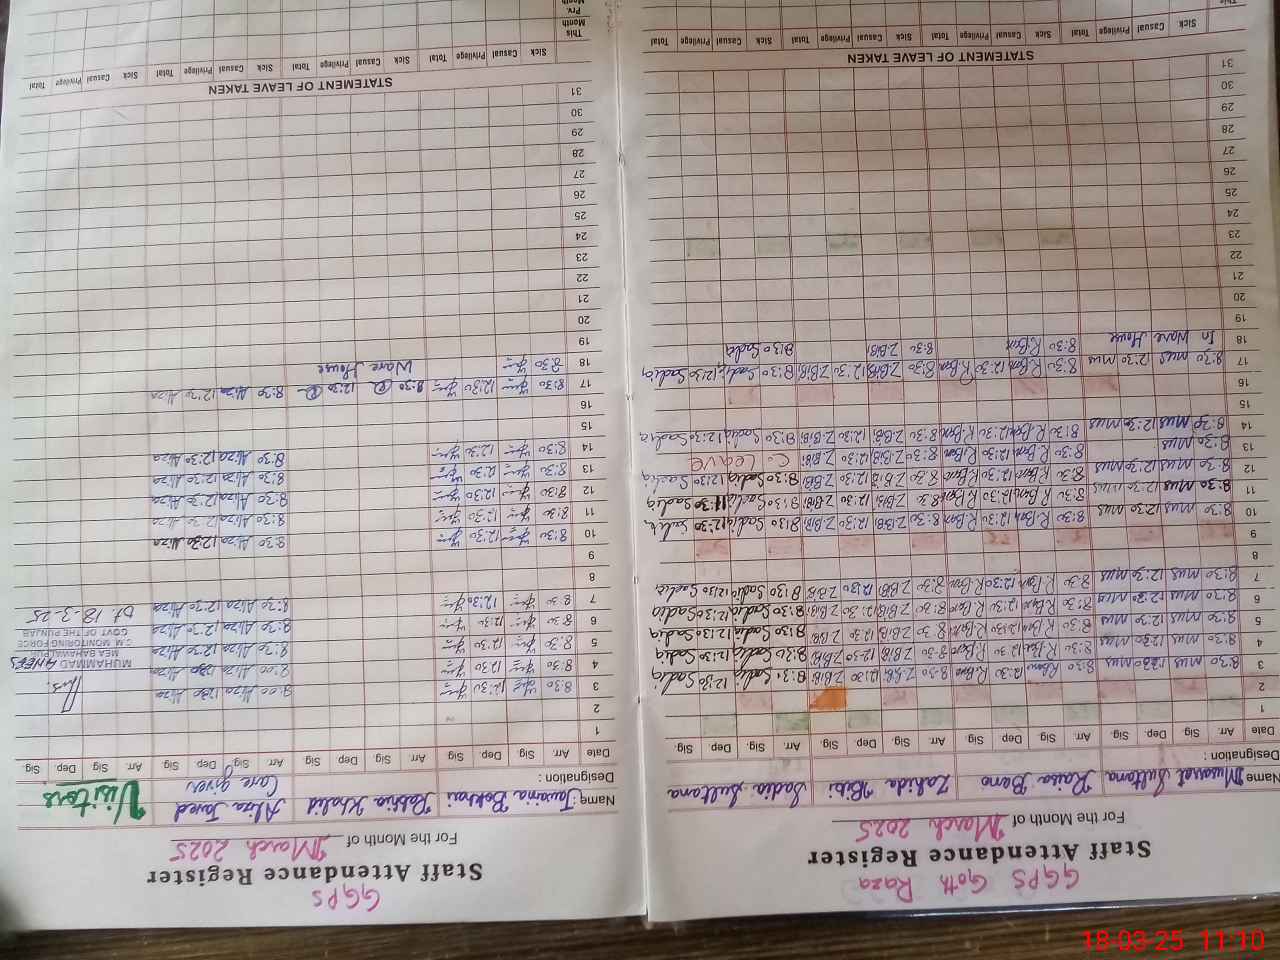 GGPS Goth Raza
Staff Attendance Register
For the Month of March 2025
Name Musarrat Sultana Raisa Bano Zahida Bibi Sadia Sultana
Designation :
Date Arr. Sig. Dep. Sig. Arr. Sig. Dep. Sig. Arr. Sig. Dep. Sig. Arr. Sig. Dep. Sig.
1
2
3 8:30 Mus 12:30 Mus 8:30 R.Bano 12:30 R.Bano 8:30 Z.BiBi 12:30 Z.BiBi 8:30 Sadia 12:30 Sadia
4 8:30 Mus 12:30 Mus 8:30 R.Bano 12:30 R.Bano 8:30 Z.BiBi 12:30 Z.BiBi 8:30 Sadia 12:30 Sadia
5 8:30 Mus 12:30 Mus 8:30 R.Bano 12:30 R.Bano 8:30 Z.BiBi 12:30 Z.BiBi 8:30 Sadia 12:30 Sadia
6 8:30 Mus 12:30 Mus 8:30 R.Bano 12:30 R.Bano 8:30 Z.BiBi 12:30 Z.BiBi 8:30 Sadia 12:30 Sadia
7 8:30 Mus 12:30 Mus 8:30 R.Bano 12:30 R.Bano 8:30 Z.BiBi 12:30 Z.BiBi 8:30 Sadia 12:30 Sadia
8
9
10 8:30 Mus 12:30 Mus 8:30 R.Bano 12:30 R.Bano 8:30 Z.BiBi 12:30 Z.BiBi 8:30 Sadia 12:30 Sadia
11 8:30 Mus 12:30 Mus 8:30 R.Bano 12:30 R.Bano 8:30 Z.BiBi 12:30 Z.BiBi 8:30 Sadia 11:30 Sadia
12 8:30 Mus 12:30 Mus 8:30 R.Bano 12:30 R.Bano 8:30 Z.BiBi 12:30 Z.BiBi 8:30 Sadia 12:30 Sadia
13 8:30 Mus 8:30 R.Bano 12:30 R.Bano 8:30 Z.BiBi 12:30 Z.BiBi C. Leave
14 8:30 Mus 12:30 Mus 8:30 R.Bano 12:30 R.Bano 8:30 Z.BiBi 12:30 Z.BiBi 8:30 Sadia 12:30 Sadia
15
16
17 8:30 Mus 12:30 Mus 8:30 R.Bano 12:30 R.Bano 8:30 Z.BiBi 12:30 Z.BiBi 8:30 Sadia 12:30 Sadia
18 In Ware House 8:30 R.Ban 8:30 Z.BiBi 8:30 Sadia
19
20
21
22
23
24
25
26
27
28
29
30
31
STATEMENT OF LEAVE TAKEN
Sick Casual Privilege Total Sick Casual Privilege Total Sick Casual Privilege Total Sick Casual Privilege Total
This
GGPS
Staff Attendance Register
For the Month of March 2025
Name: Javaria Bokhai Rabbia Khalid Aliza Javed Visitors
Designation : Care giver
Date Arr. Sig. Dep. Sig. Arr. Sig. Dep. Sig. Arr. Sig. Dep. Sig. Arr. Sig. Dep. Sig.
1
2
3 8:30 12:30 8:00 Aliza 12:30 Aliza
4 8:30 12:30 8:00 Aliza 12:30 Aliza
MUHAMMAD ANEES
5 8:30 12:30 8:30 Aliza 12:30 Aliza
MEA BAHAWALPUR
C.M. MONITORING FORCE
6 8:30 12:30 8:30 Aliza 12:30 Aliza
GOVT OF THE PUNJAB
7 8:30 12:30 8:30 Aliza 12:30 Aliza
Dt 18-3-25
8
9
10 8:30 12:30 8:30 Aliza 12:30 Aliza
11 8:30 12:30 8:30 Aliza 12:30 Aliza
12 8:30 12:30 8:30 Aliza 12:30 Aliza
13 8:30 12:30 8:30 Aliza 12:30 Aliza
14 8:30 12:30 8:30 Aliza 12:30 Aliza
15
16
17 8:30 12:30 8:30 12:30 8:30 Aliza 12:30 Aliza
18 8:30 Ware House
19
20
21
22
23
24
25
26
27
28
29
30
31
STATEMENT OF LEAVE TAKEN
Sick Casual Privilege Total Sick Casual Privilege Total Sick Casual Privilege Total Sick Casual Privilege Total
This
Month
Prv.
Month
18-03-25 11:10